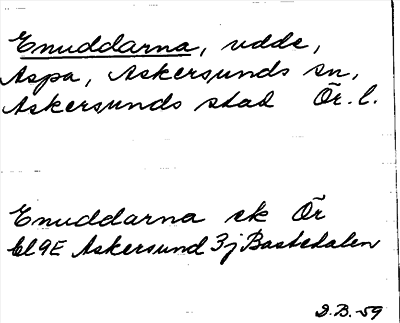 Enuddarna, udde,
Aspa, Askersunds sn,
Askersunds stad Ör. l.
Enuddarna ek Ör
bl 9E Askersund 3j Bastedalen
D.B.-59